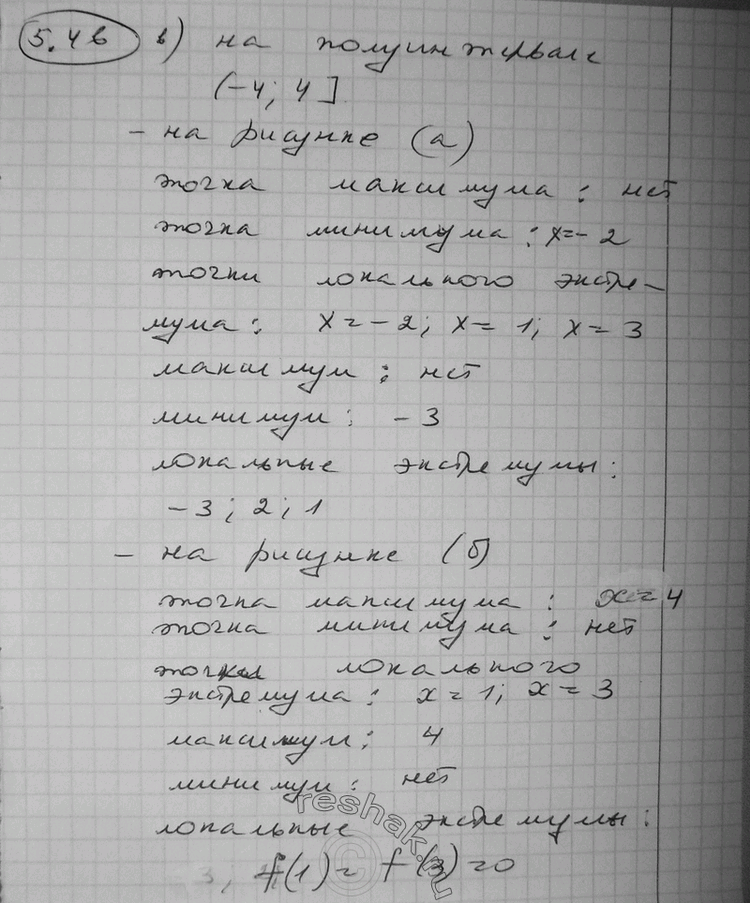 5.4в в) на полуинтервале
(-4; 4]
- на рисунке (а)
точка максимума: нет
точка минимума: x=-2
точки локального экстре-
мума: x=-2; x=1; x=3
максимум: нет
минимум: -3
локальные экстремумы:
-3; 2; 1
- на рисунке (б)
точка максимума: x=4
точка минимума: нет
точки локального
экстремума: x=1; x=3
максимум: 4
минимум: нет
локальные экстремумы:
f(1)= f(3)=0
reshak.ru